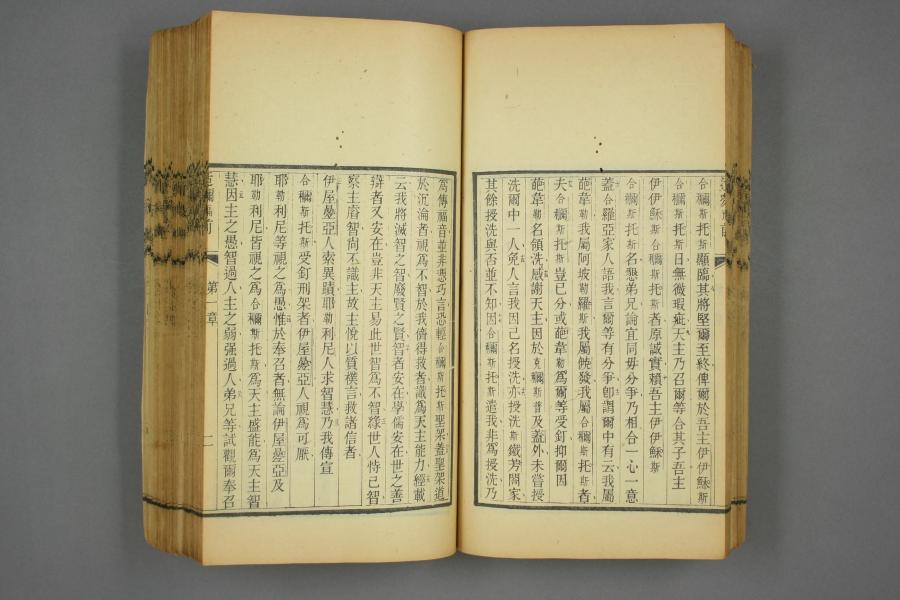 合穪斯托斯顯臨其將堅爾至終俾爾於吾主伊伊穌斯
合穪斯托斯日無微瑕疵天主乃召爾等合其子吾主
伊伊穌斯合穪斯托斯者原誠實賴吾主伊伊穌斯
合穪斯托斯名懇弟兄論宜同毋分爭乃相合一心一意
蓋合羅亞家人語我言爾等有分爭卽謂爾中有云我屬
葩韋勒我屬阿坡勒羅斯我屬發我屬合穪斯托斯者
夫合穪斯托斯豈已分或葩韋勒爲爾等受釘抑爾因
葩韋勒名領洗感謝天主因於克穪斯普及蓋外未嘗授
洗爾中一人免人言我因己名授洗亦授洗斯鐵芳閤家
其餘授洗與否並不知因合穪斯托斯遣我非爲授洗乃
爲傳福音並非憑巧言恐輕合穪斯托斯聖架蓋聖架道
於沉淪者視爲不智於我儕得救者識爲天主能力經載
云我將滅智之智廢賢之賢智者安在學儒安在世之善
辯者又安在豈非天主易此世智爲不智緣世人恃己智
察主睿智尙不識主故主悅以質樸言救諸信者
伊屋疊亞人索異蹟耶勒利尼人求智慧乃我傳宣
合穪斯托斯受釘刑架者伊屋疊亞人視爲可厭
耶勒利尼等視之爲愚惟於奉召者無論伊屋疊亞及
耶勒利尼皆視之爲合穪斯托斯爲天主盛能爲天主智
慧因主之愚智過人主之弱强過人弟兄等試觀爾奉召
第一章